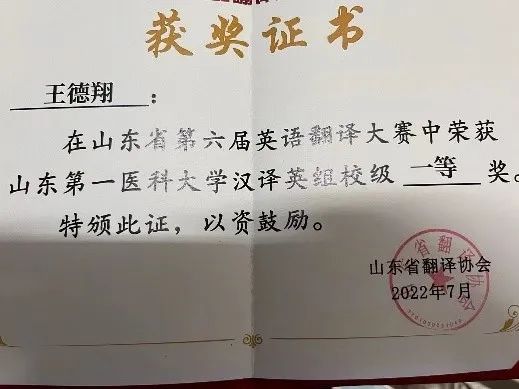 获奖证书
王德翔：
在山东省第六届英语翻译大赛中荣获
山东第一医科大学汉译英组校级 一等 奖。
特颁此证，以资鼓励。
山东省翻译协会
2022年7月